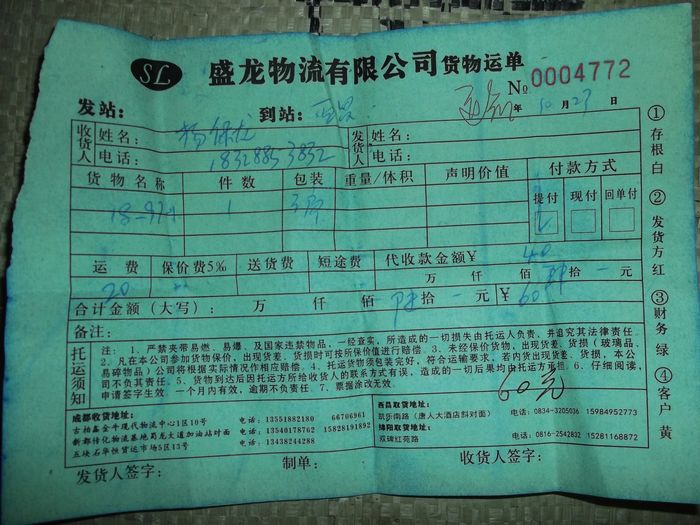 SL 盛龙物流有限公司货物运单
№ 0004772
发站： 到站： 年 10 月 27 日
收货人 姓名： 杨保龙 发货人 姓名：
电话： 18328853832 电话：
货物名称 件数 包装 重量/体积 声明价值 付款方式
提付 现付 回单付
1
运费 保价费5% 送货费 短途费 代收款金额¥ 40
20 万 仟 佰 拾 元
合计金额（大写）： 万 仟 佰 陆拾 元 ¥ 60
备注：
托运须知
注：1、严禁夹带易燃、易爆、及国家违禁物品，一经查实，所造成的一切损失由托运人负责，并追究其法律责任。
2、凡在本公司参加货物保价，出现货差、货损时可按所保价值进行赔偿。3、未经保价货物，出现货差、货损（玻璃品、
易碎物品）公司将根据实际情况作相应赔偿。4、托运货物须包装完好，符合运输要求，若内货出现货差、货损，本公
司不负其责任。5、货物到达后因托运方所给收货人的联系方式有误，造成的一切后果均由托运方承担。6、仔细阅读，
申请签字生效 一个月内有效，逾期不负责任。7、票据涂改无效。
60元
成都收货地址：
古柏鑫金牛现代物流中心1区10号 电话：13551882180 66706961
新都转化物流基地蜀龙大道加油站对面 电话：13540178762 15828191892
五块石华恒货运市场5区13号 电话：13438244288
西昌取货地址：
凯乐南路（唐人大酒店斜对面） 电话：0834-3205036 15984952773
绵阳取货地址：
双碑红苑路 电话：0816-2542832 15281168872
发货人签字： 制单： 收货人签字：
①存根白 ②发货方红 ③财务绿 ④客户黄